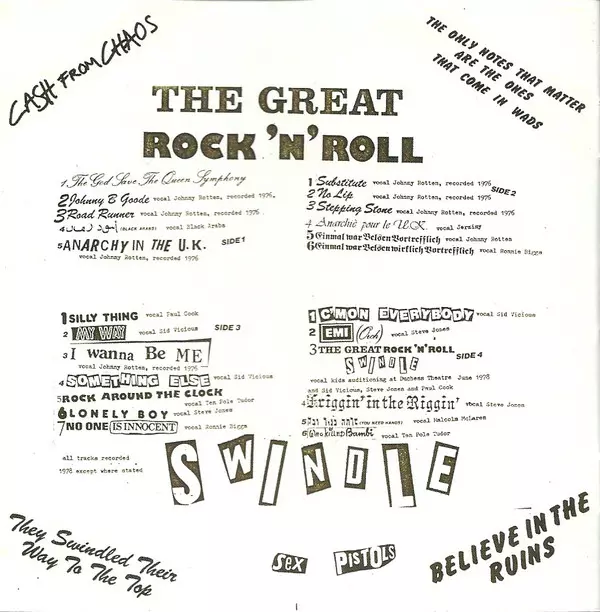 CASH FROM CHAOS
THE ONLY NOTES THAT MATTER
ARE THE ONES
THAT COME IN WADS
THE GREAT
ROCK 'N' ROLL
1 The God Save The Queen Symphony
2 Johnny B Goode vocal Johnny Rotten, recorded 1976,
3 Road Runner vocal Johnny Rotten, recorded 1976
4 (BLACK ARABS) vocal Black Arabs
5 ANARCHY IN THE U.K. SIDE 1
vocal Johnny Rotten, recorded 1976
1 Substitute vocal Johnny Rotten, recorded 1976
SIDE 2
2 No Lip vocal Johnny Rotten, recorded 1976
3 Stepping Stone vocal Johnny Rotten, recorded 1976
4 Anarchie pour le U.K. vocal Jerzimy
5 Einmal war Belsen Vortrefflich vocal Johnny Rotten
6 Einmal war Belsen wirklich Vortrefflich vocal Ronnie Biggs
1 SILLY THING vocal Paul Cook
2 MY WAY vocal Sid Vicious SIDE 3
3 I wanna Be ME
vocal Johnny Rotten, recorded 1976
4 SOMETHING ELSE vocal Sid Vicious
5 ROCK AROUND THE CLOCK
vocal Ten Pole Tudor
6 LONELY BOY vocal Steve Jones
7 NO ONE IS INNOCENT vocal Ronnie Biggs
all tracks recorded
1978 except where stated
1 C'MON EVERYBODY vocal Sid Vicious
2 EMI (Orch) vocal Steve Jones
3 THE GREAT ROCK 'N' ROLL
SWINDLE SIDE 4
vocal kids auditioning at Duchess Theatre June 1978
and Sid Vicious, Steve Jones and Paul Cook
4 Friggin' in the Riggin' vocal Steve Jones
5 (YOU NEED HANDS) vocal Malcolm McLaren
6 Who Killed Bambi vocal Ten Pole Tudor
SWINDLE
They Swindled Their
Way To The Top
SeX PISTOLS
BELIEVE IN THE
RUINS